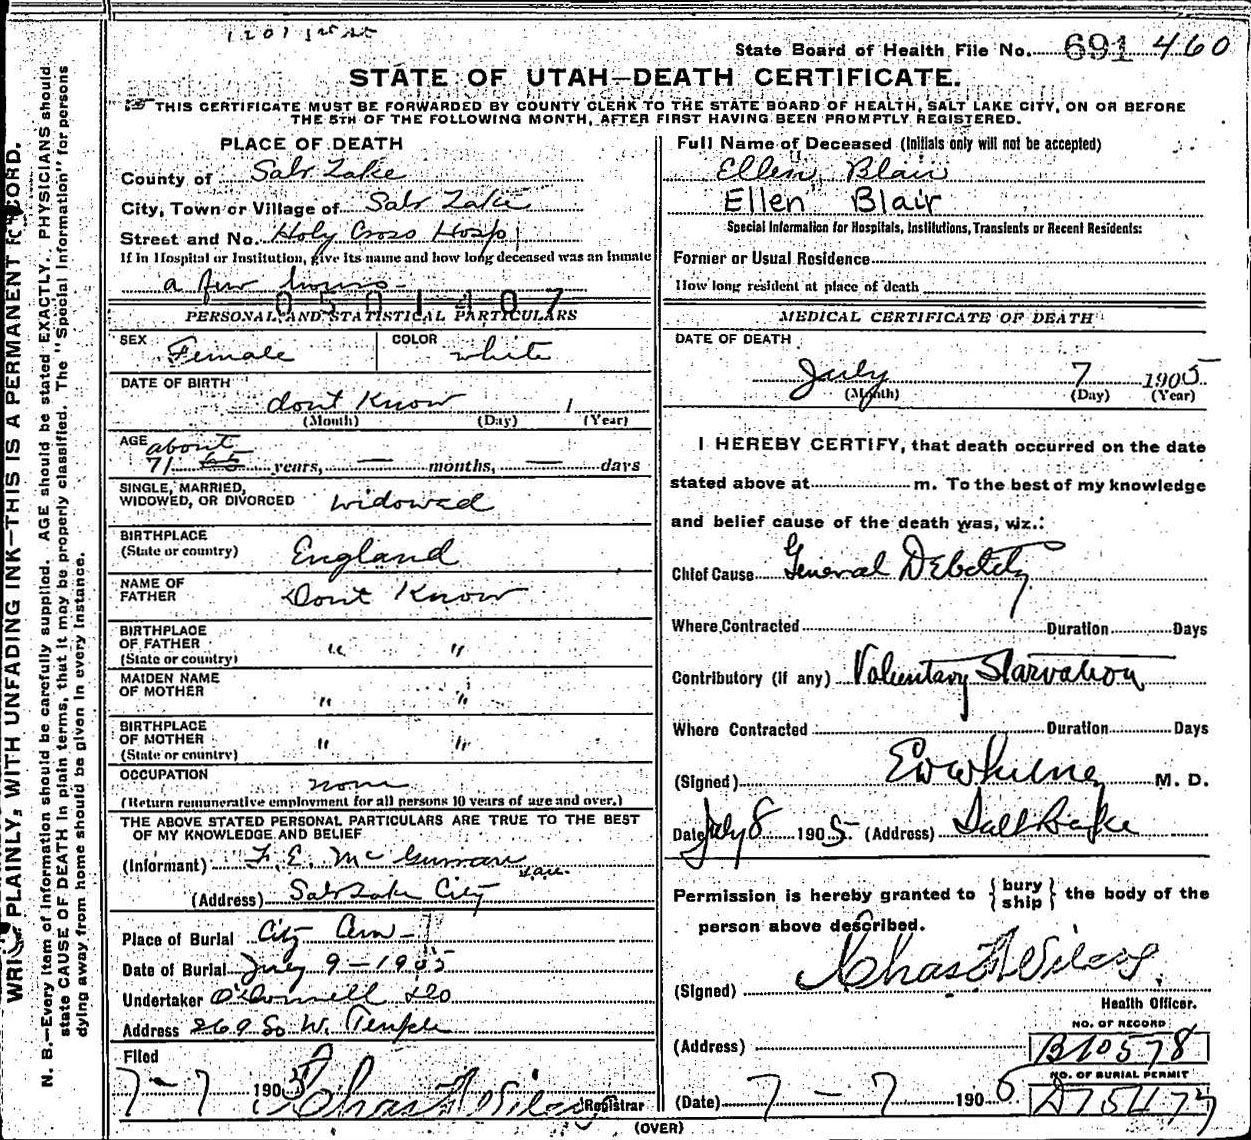 State Board of Health File No. 691 460
STATE OF UTAH—DEATH CERTIFICATE.
THIS CERTIFICATE MUST BE FORWARDED BY COUNTY CLERK TO THE STATE BOARD OF HEALTH, SALT LAKE CITY, ON OR BEFORE
THE 5TH OF THE FOLLOWING MONTH, AFTER FIRST HAVING BEEN PROMPTLY REGISTERED.
WRITE PLAINLY, WITH UNFADING INK—THIS IS A PERMANENT RECORD.
N. B.—Every item of information should be carefully supplied. AGE should be stated EXACTLY. PHYSICIANS should
state CAUSE OF DEATH in plain terms, that it may be properly classified. The "Special Information" for persons
dying away from home should be given in every instance.
PLACE OF DEATH
County of Salt Lake
City, Town or Village of Salt Lake
Street and No. Holy Cross Hosp
If in Hospital or Institution, give its name and how long deceased was an Inmate
a few hours
0501407
PERSONAL AND STATISTICAL PARTICULARS
SEX Female COLOR white
DATE OF BIRTH dont Know 1
(Month) (Day) (Year)
AGE about
71 65 years, — months, — days
SINGLE, MARRIED,
WIDOWED, OR DIVORCED widowed
BIRTHPLACE
(State or country) England
NAME OF
FATHER Dont Know
BIRTHPLACE
OF FATHER " "
(State or country)
MAIDEN NAME
OF MOTHER " "
BIRTHPLACE
OF MOTHER " "
(State or country)
OCCUPATION none
(Return remunerative employment for all persons 10 years of age and over.)
THE ABOVE STATED PERSONAL PARTICULARS ARE TRUE TO THE BEST
OF MY KNOWLEDGE AND BELIEF
(Informant) F. E. McGurran
(Address) Salt Lake City
Place of Burial City Cem
Date of Burial July 9-1905
Undertaker O'Donnell & Co
Address 269 So W. Temple
Filed
7-7 1905 Registrar
(OVER)
Full Name of Deceased (Initials only will not be accepted)
Ellen Blair
Ellen Blair
Special Information for Hospitals, Institutions, Transients or Recent Residents:
Former or Usual Residence
How long resident at place of death
MEDICAL CERTIFICATE OF DEATH
DATE OF DEATH
July 7 1905
(Month) (Day) (Year)
I HEREBY CERTIFY, that death occurred on the date
stated above at m. To the best of my knowledge
and belief cause of the death was, viz.:
Chief Cause General Debility
Where Contracted Duration Days
Contributory (if any) Voluntary Starvation
Where Contracted Duration Days
(Signed) M. D.
Date July 8 1905 (Address) Salt Lake
Permission is hereby granted to { bury ship } the body of the
person above described.
(Signed)
Health Officer.
NO. OF RECORD
(Address) B10578
NO. OF BURIAL PERMIT
(Date) 7-7 1905